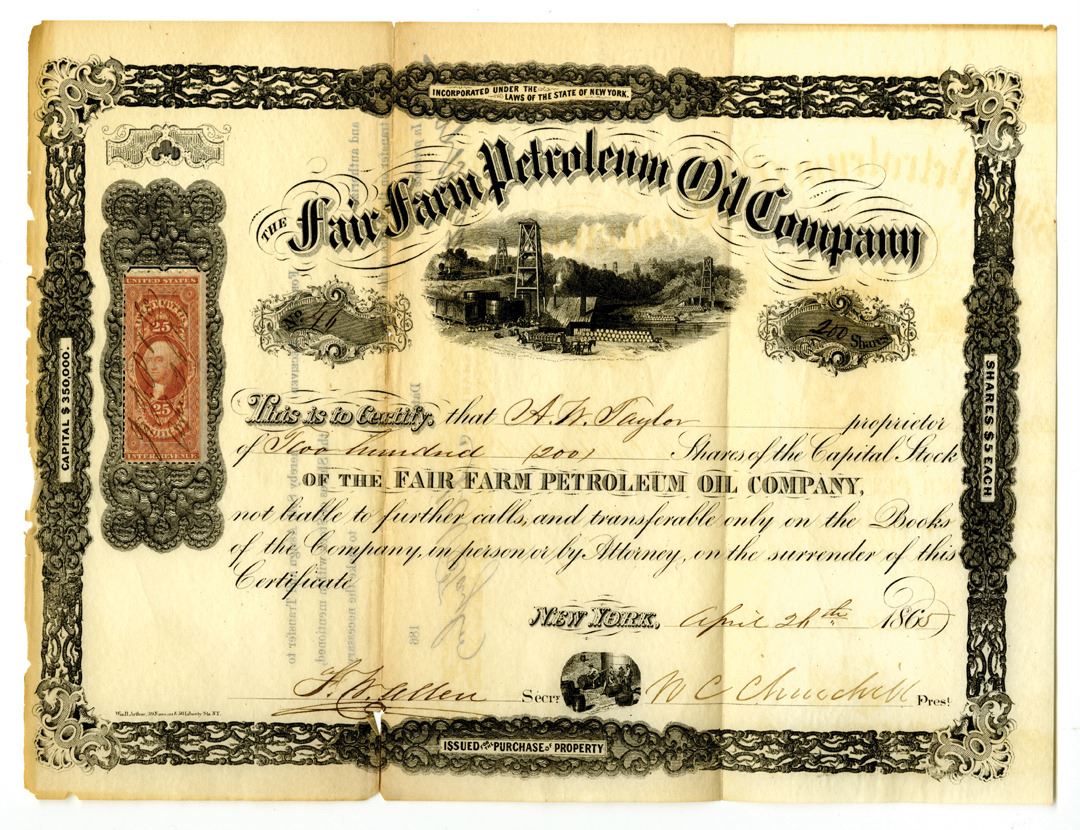 INCORPORATED UNDER THE
LAWS OF THE STATE OF NEW YORK.
THE Fair Farm Petroleum Oil Company
No
200 Shares
UNITED STATES
25
25
INTER. REVENUE
CAPITAL $350,000.
SHARES $5 EACH
This is to Certify, that A. W. Taylor proprietor
of Two hundred (200) Shares of the Capital Stock
OF THE FAIR FARM PETROLEUM OIL COMPANY,
not liable to further calls, and transferable only on the Books
of the Company, in person, or by Attorney, on the surrender of this
Certificate
NEW YORK, April 26th 1865
F. W. Allen Secry W C Churchill Prest
Wm. H. Arthur, 39 Nassau & 56 Liberty Sts. N.Y.
ISSUED FOR PURCHASE of PROPERTY